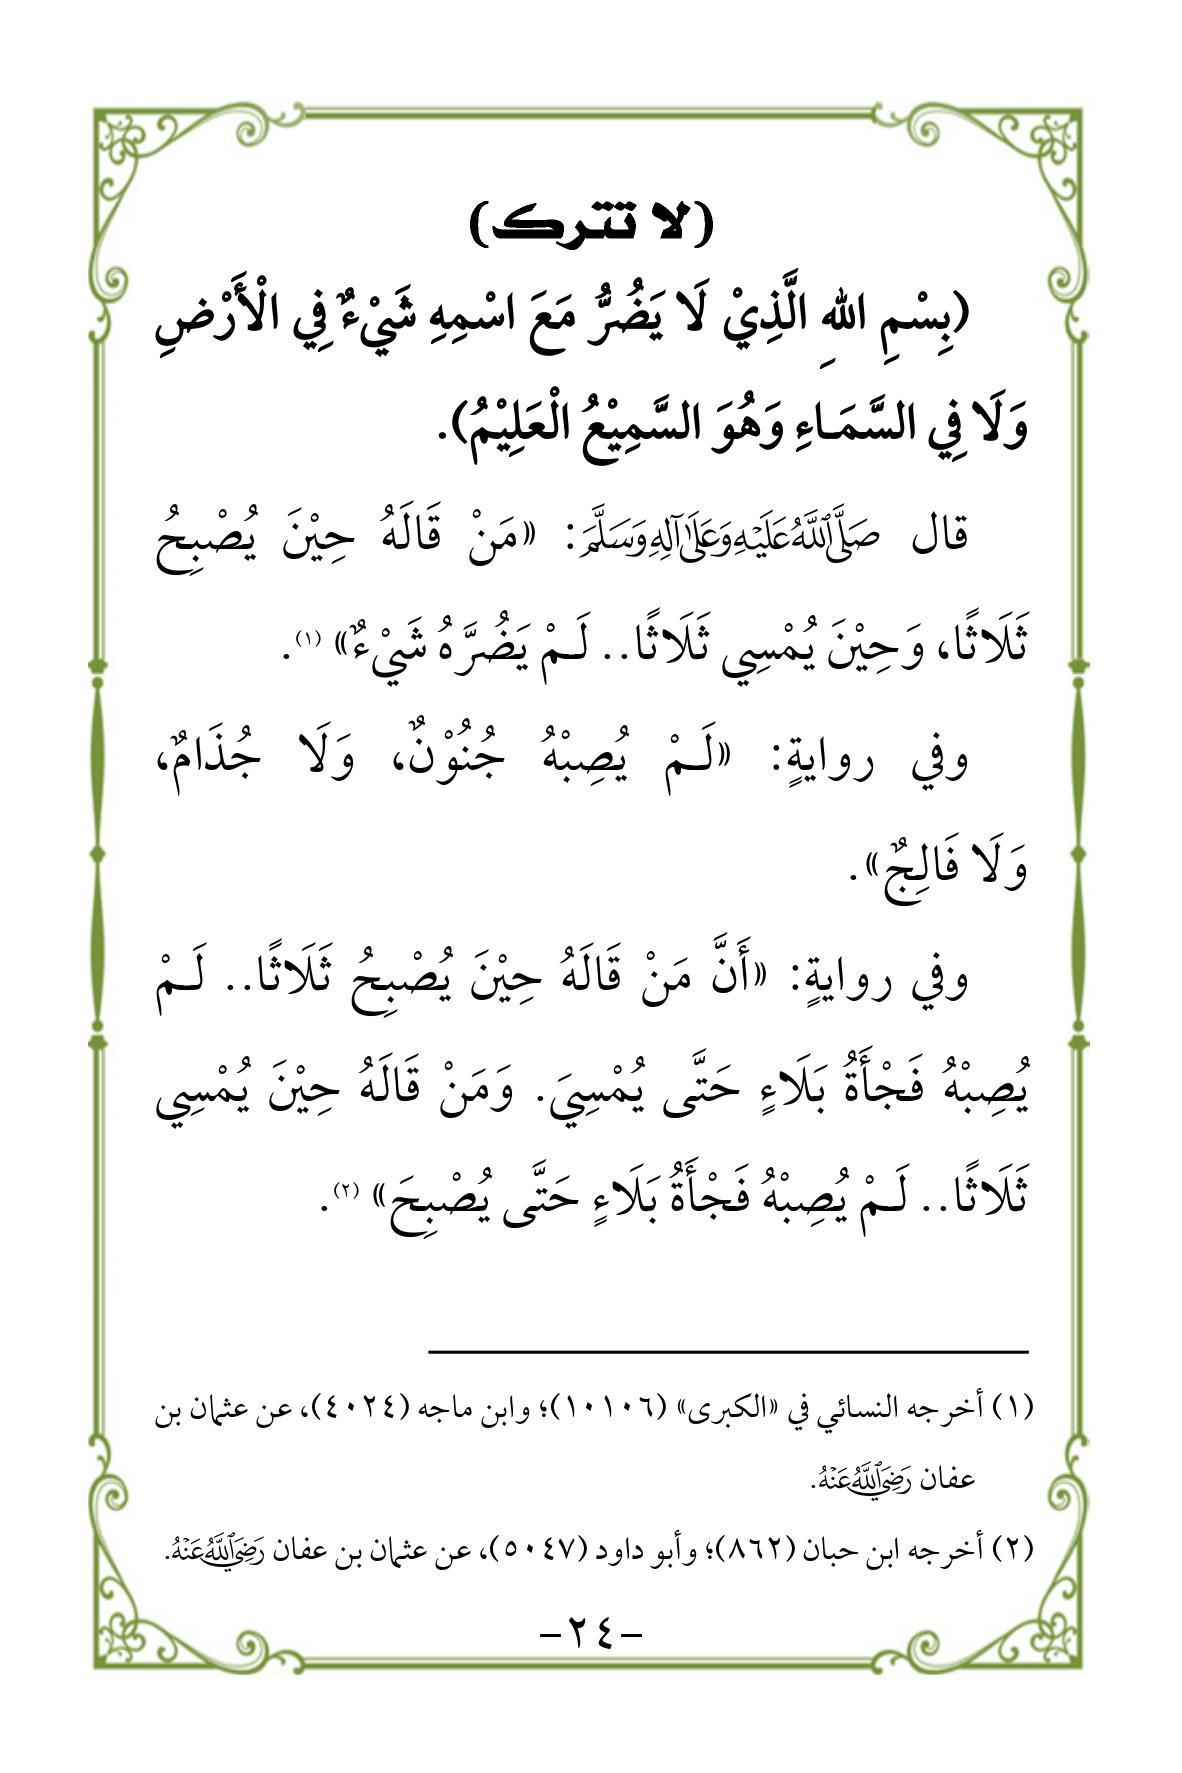 (لا تترك)
(بِسْمِ اللهِ الَّذِيْ لَا يَضُرُّ مَعَ اسْمِهِ شَيْءٌ فِي الْأَرْضِ
وَلَا فِي السَّمَاءِ وَهُوَ السَّمِيْعُ الْعَلِيْمُ).
قال صَلَّى اللَّهُ عَلَيْهِ وَعَلَى آلِهِ وَسَلَّمَ: «مَنْ قَالَهُ حِيْنَ يُصْبِحُ
ثَلَاثًا، وَحِيْنَ يُمْسِي ثَلَاثًا.. لَـمْ يَضُرَّهُ شَيْءٌ» (١).
وفي روايةٍ: «لَـمْ يُصِبْهُ جُنُوْنٌ، وَلَا جُذَامٌ،
وَلَا فَالِجٌ».
وفي روايةٍ: «أَنَّ مَنْ قَالَهُ حِيْنَ يُصْبِحُ ثَلَاثًا.. لَـمْ
يُصِبْهُ فَجْأَةُ بَلَاءٍ حَتَّى يُمْسِيَ. وَمَنْ قَالَهُ حِيْنَ يُمْسِي
ثَلَاثًا.. لَـمْ يُصِبْهُ فَجْأَةُ بَلَاءٍ حَتَّى يُصْبِحَ» (٢).
(١) أخرجه النسائي في «الكبرى» (١٠١٠٦)؛ وابن ماجه (٤٠٢٤)، عن عثمان بن
عفان رَضِيَ اللَّهُ عَنْهُ.
(٢) أخرجه ابن حبان (٨٦٢)؛ وأبو داود (٥٠٤٧)، عن عثمان بن عفان رَضِيَ اللَّهُ عَنْهُ.
–٢٤–